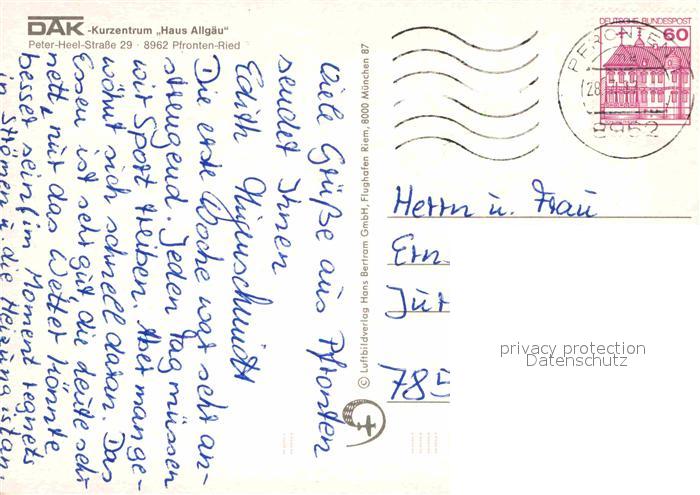 DAK -Kurzentrum „Haus Allgäu"
Peter-Heel-Straße 29 · 8962 Pfronten-Ried
Viele Grüße aus Pfronten
sendet Ihnen
Edith
Die erste Woche war sehr an-
strengend. Jeden Tag müssen
wir Sport treiben. Aber man ge-
wöhnt sich schnell daran. Das
Essen ist sehr gut, die Leute sehr
nett, nur das Wetter könnte
besser sein (im Moment regnets
in Strömen u. die Heizung ist an.
© Luftbildverlag Hans Bertram GmbH, Flughafen Riem, 8000 München 87
DEUTSCHE BUNDESPOST
60
PFRONTEN
8962
Herrn u. Frau
Ern
Jür
785
privacy protection
Datenschutz